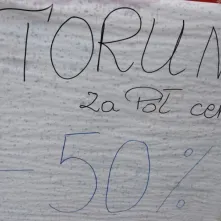 TORUŃ
za Pół cen
- 50%